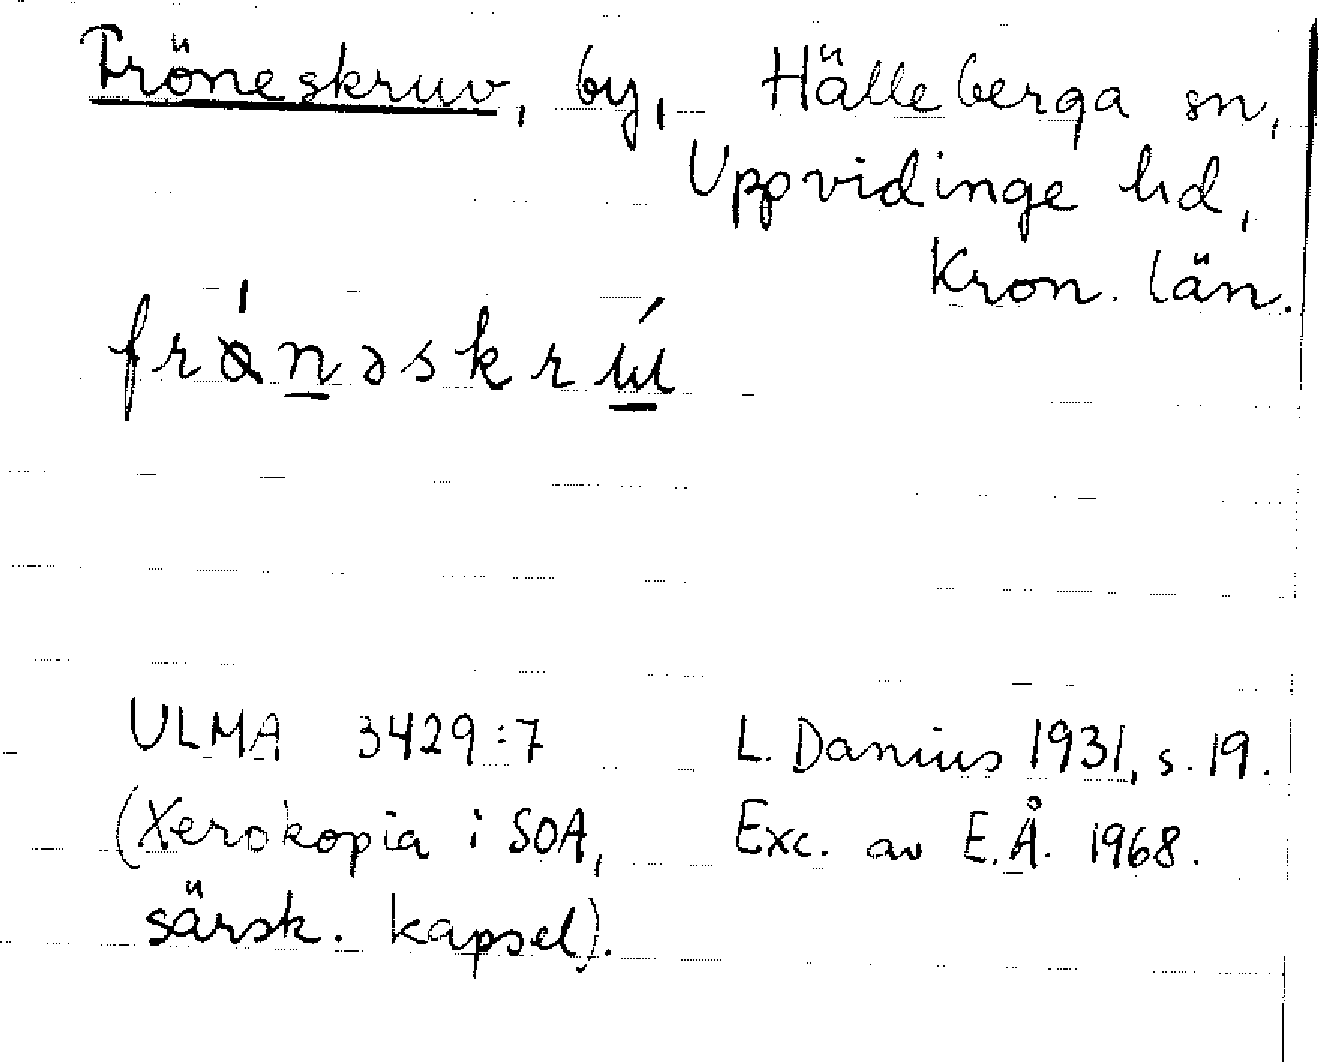 Fröneskruv, by, Hälleberga sn,
Uppvidinge hd,
Kron. län.
ULMA 3429:7 L. Danius 1931, s. 19.
(Xerokopia i SOA, Exc. av E.Å. 1968.
särsk. kapsel).